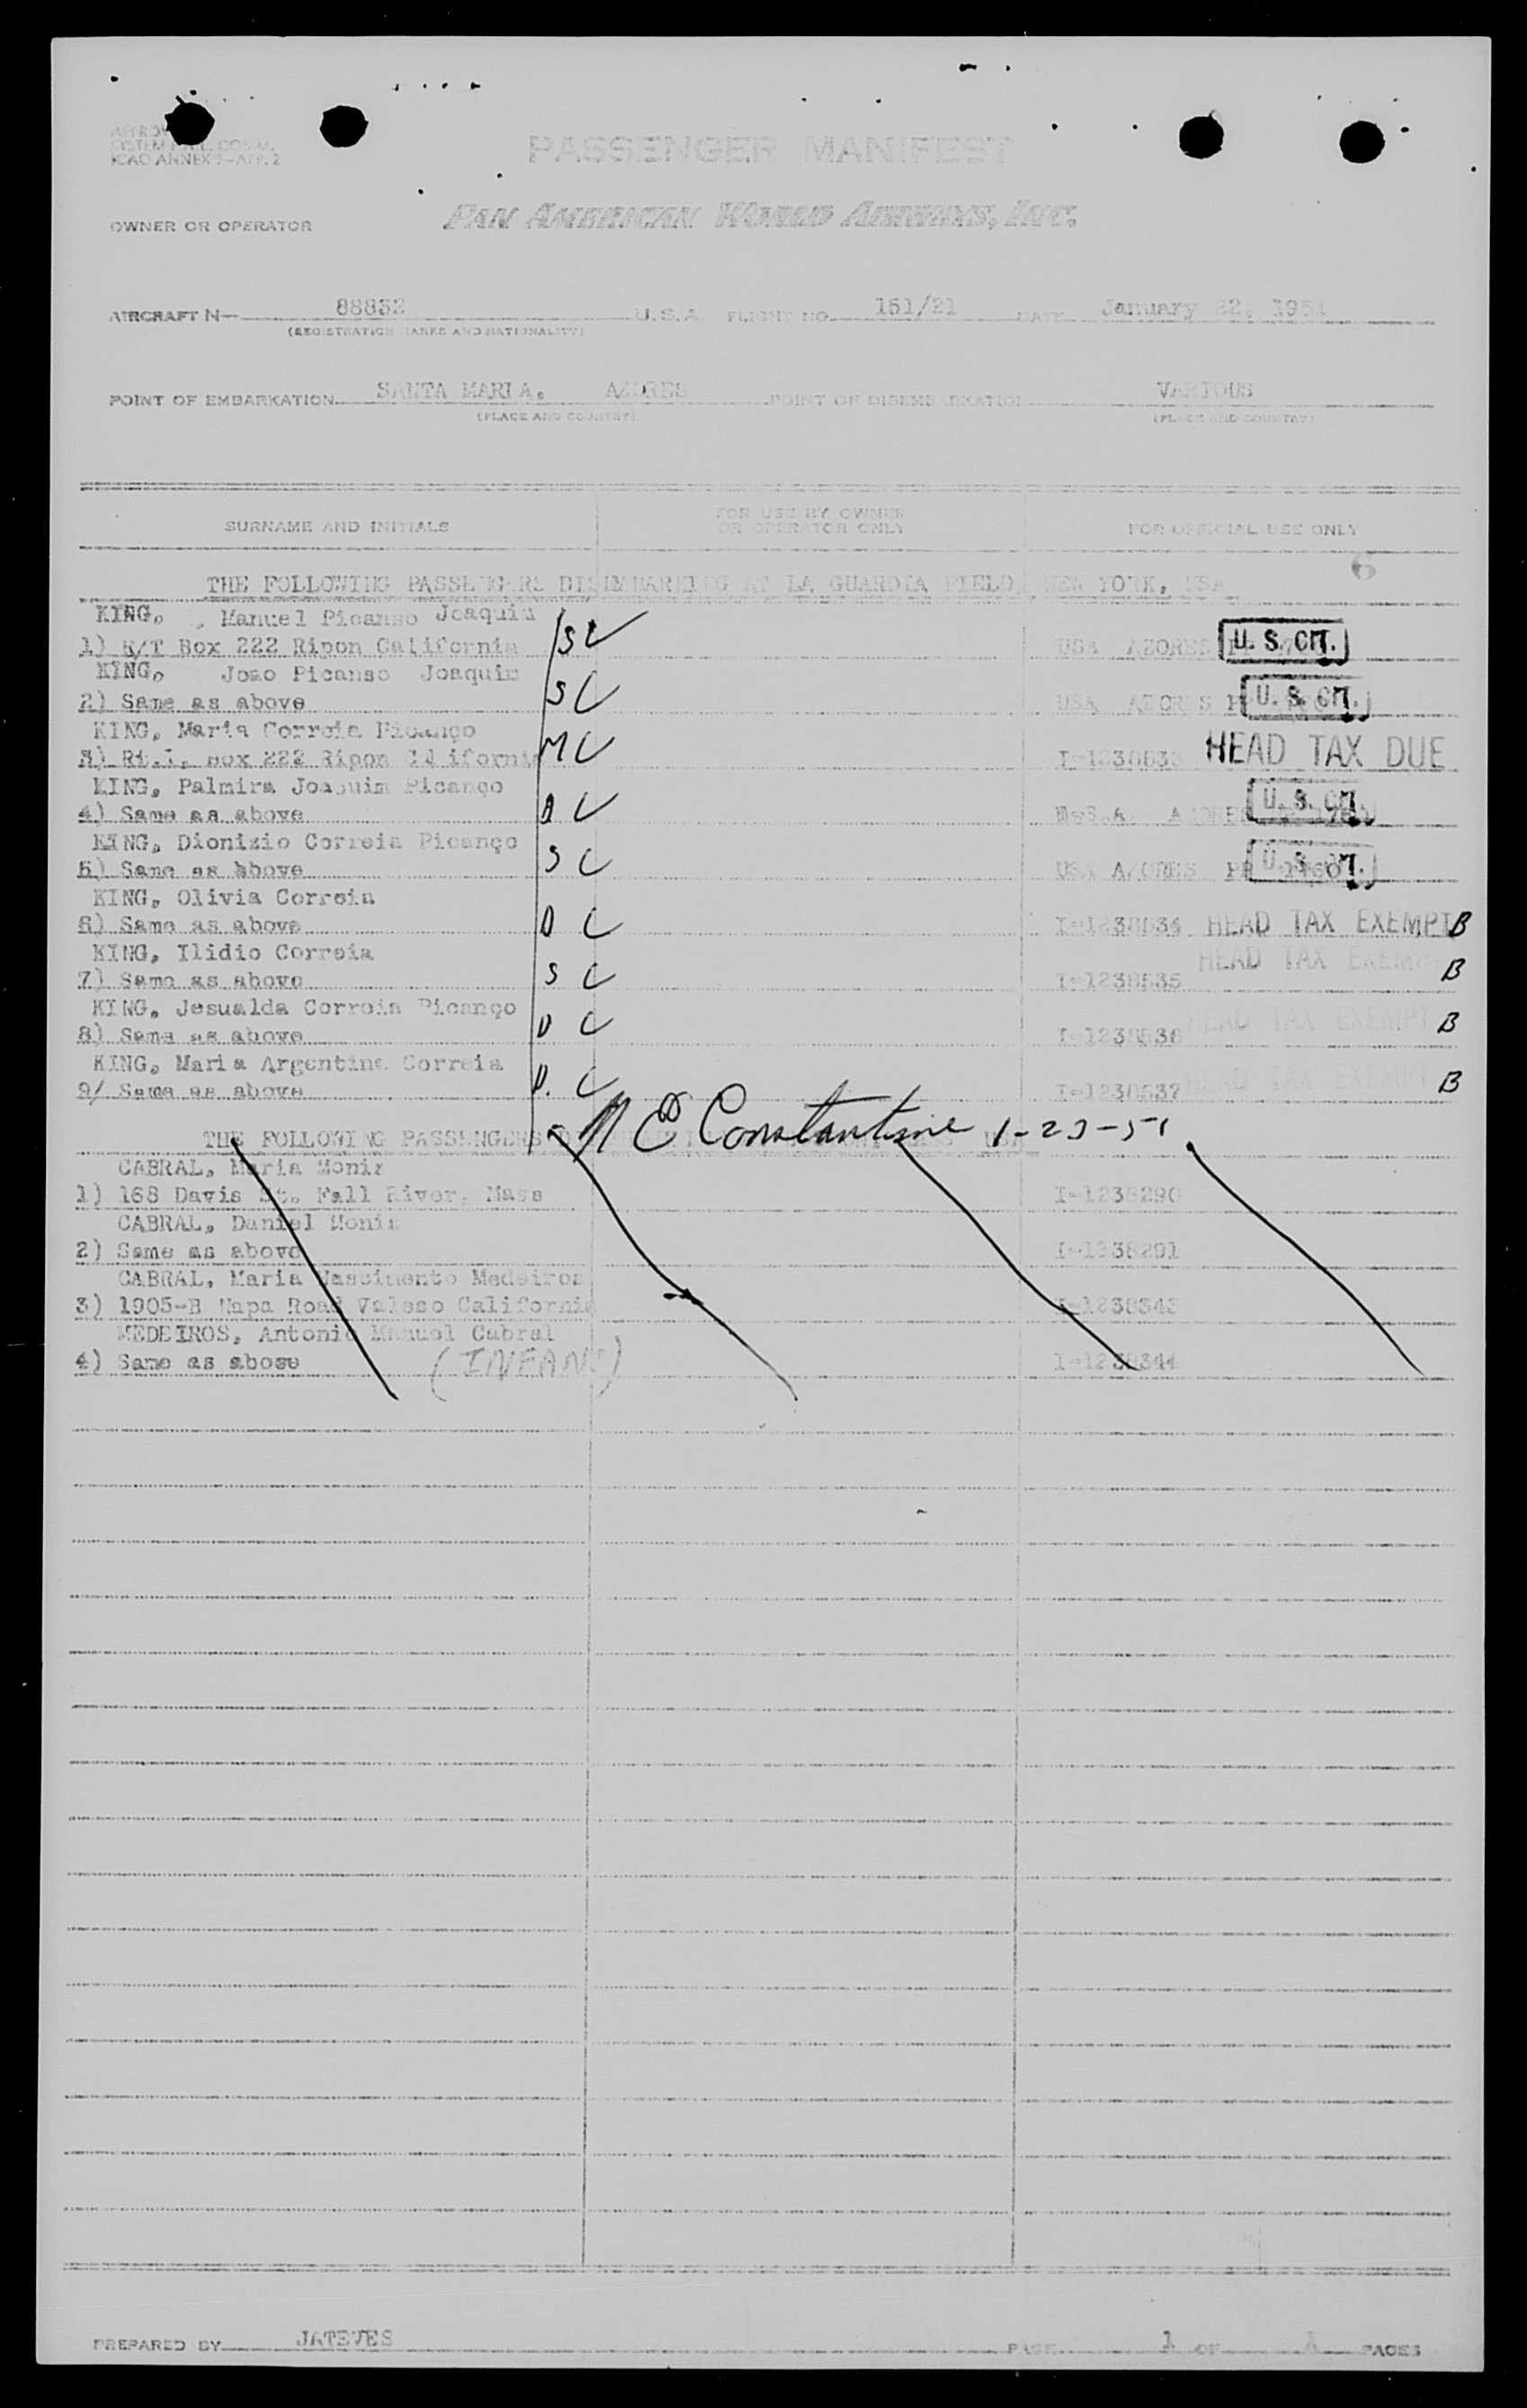 PASSENGER MANIFEST
ICAO ANNEX
OWNER OR OPERATOR PAN AMERICAN WORLD AIRWAYS, INC.
AIRCRAFT N— 88832 U.S.A. FLIGHT NO. 151/21 DATE January 22, 1951
(REGISTRATION MARKS AND NATIONALITY)
POINT OF EMBARKATION SANTA MARIA, AZORES POINT OF DISEMBARKATION VARIOUS
(PLACE AND COUNTRY) (PLACE AND COUNTRY)
SURNAME AND INITIALS FOR USE BY OWNER OR OPERATOR ONLY FOR OFFICIAL USE ONLY
6
THE FOLLOWING PASSENGERS DISEMBARKING AT LA GUARDIA FIELD, NEW YORK, USA
KING, Manuel Picanso Joaquim
1) Box 222 Ripon California S USA AZORES U. S. CIT.
KING, Joao Picanso Joaquim
2) Same as above S USA U. S. CIT.
KING, Maria Correia Picanço
3) Box 222 Ripon California M HEAD TAX DUE
KING, Palmira Joaquim Picanço
4) Same as above U. S. CIT.
KING, Dionizio Correia Picanço
5) Same as above S USA AZORES U. S. CIT.
KING, Olivia Correia
6) Same as above I-1238534 HEAD TAX EXEMPT B
KING, Ilidio Correia
7) Same as above S I-1238535 HEAD TAX EXEMPT B
KING, Jesualda Correia Picanço
8) Same as above I-1238536 HEAD TAX EXEMPT B
KING, Maria Argentina Correia
9/ Same as above I-1238537 HEAD TAX EXEMPT B
Constantine 1-23-51
THE FOLLOWING PASSENGERS
CABRAL, Maria Moniz
1) 168 Davis St. Fall River, Mass I-1238290
CABRAL, Daniel Moniz
2) Same as above I-1238291
CABRAL, Maria Nascimento Medeiros
3) 1905-B Napa Road California I-1238343
MEDEIROS, Antonio Manuel Cabral
4) Same as above (INFANT) I-1238344
PREPARED BY JATEVES PAGE 1 OF PAGES